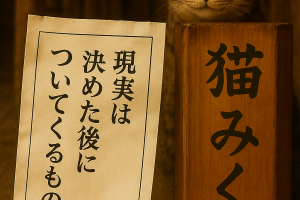 現実は
決めた後に
ついてくるもの
猫みく